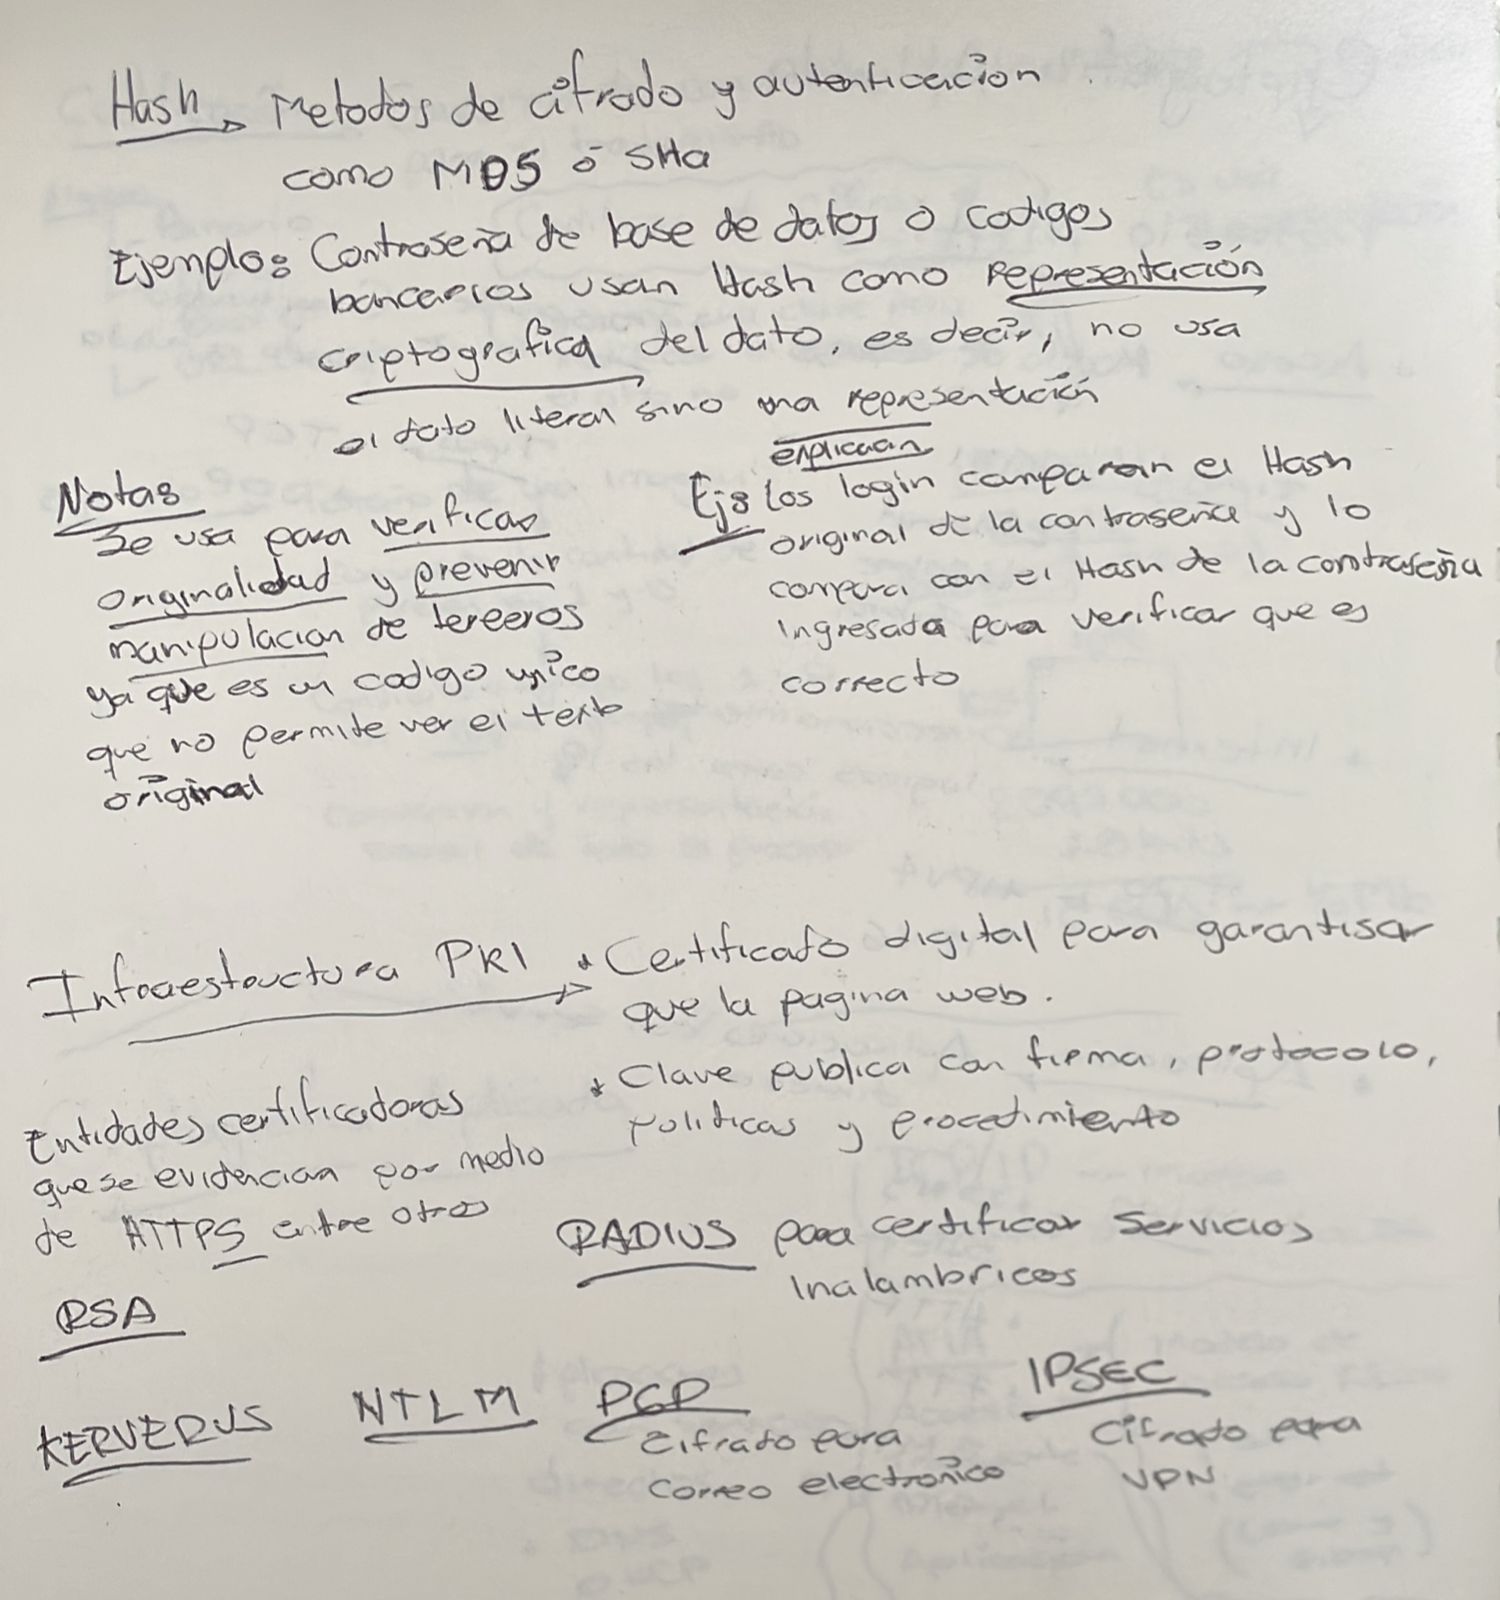 Hash → Metodos de cifrado y autenticacion
como MD5 ó SHa
Ejemplo: Contraseña de base de datos o codigos
bancarios usan Hash como representación
criptografica del dato, es decir, no usa
el dato literal sino una representación
explicacion
Notas
Se usa para verificar
originalidad y prevenir
manipulacion de terceros
ya que es un codigo unico
que no permite ver el texto
original
Ej: Los login comparan el Hash
original de la contraseña y lo
compara con el Hash de la contraseña
Ingresada para verificar que es
correcto
Infraestructura PKI → * Certificado digital para garantisar
que la pagina web.
* Clave publica con firma, protocolo,
politicas y procedimiento
Entidades certificadoras
que se evidencian por medio
de HTTPS entre otros
RADIUS para certificar Servicios
Inalambricos
RSA
KERVERUS NTLM PGP IPSEC
Cifrado para
Correo electronico
Cifrado para
VPN